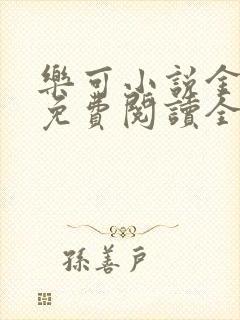 樂可小説全
免費閱讀全
孫善戶